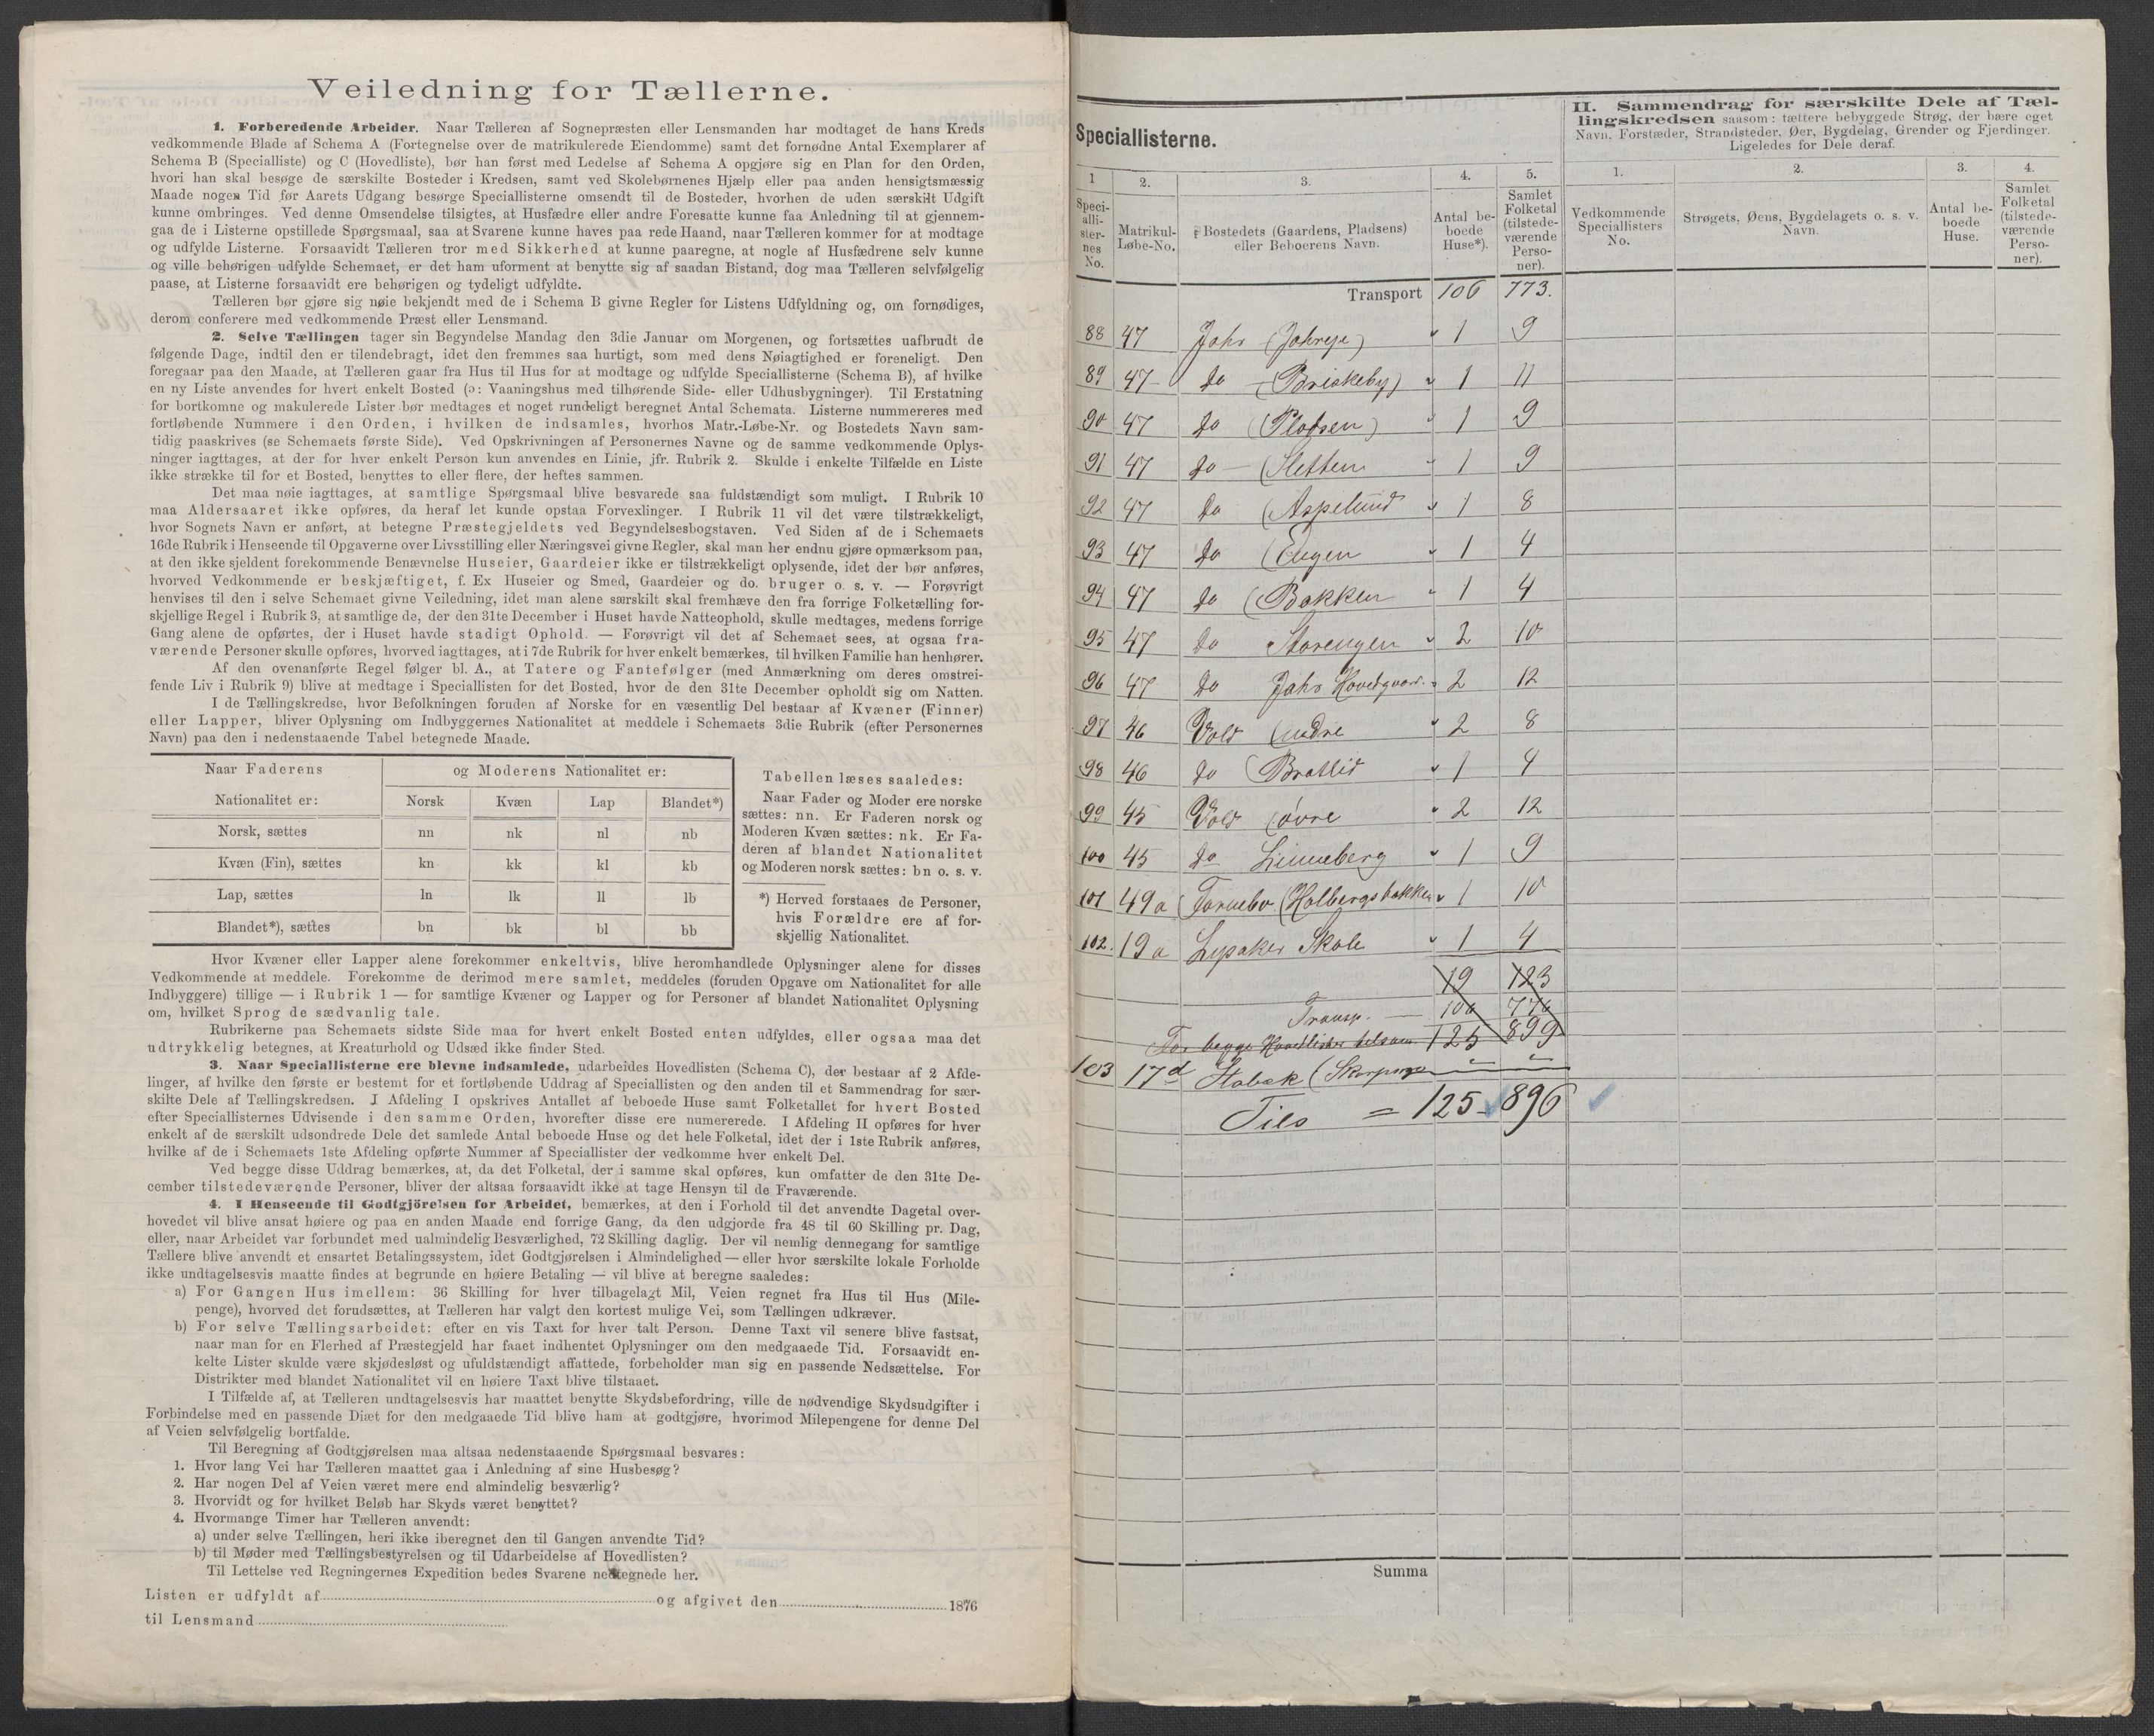 Veiledning for Tællerne.
1. Forberedende Arbeider. Naar Tælleren af Sognepræsten eller Lensmanden har modtaget de hans Kreds
vedkommende Blade af Schema A (Fortegnelse over de matrikulerede Eiendomme) samt det fornødne Antal Exemplarer af
Schema B (Specialliste) og C (Hovedliste), bør han først med Ledelse af Schema A opgjøre sig en Plan for den Orden,
hvori han skal besøge de særskilte Bosteder i Kredsen, samt ved Skolebørnenes Hjælp eller paa anden hensigtsmæssig
Maade nogen Tid før Aarets Udgang besørge Speciallisterne omsendt til de Bosteder, hvorhen de uden særskilt Udgift
kunne ombringes. Ved denne Omsendelse tilsigtes, at Husfædre eller andre Foresatte kunne faa Anledning til at gjennem-
gaa de i Listerne opstillede Spørgsmaal, saa at Svarene kunne haves paa rede Haand, naar Tælleren kommer for at modtage
og udfylde Listerne. Forsaavidt Tælleren tror med Sikkerhed at kunne paaregne, at nogle af Husfædrene selv kunne
og ville behørigen udfylde Schemaet, er det ham uforment at benytte sig af saadan Bistand, dog maa Tælleren selvfølgelig
paase, at Listerne forsaavidt ere behørigen og tydeligt udfyldte.
Tælleren bør gjøre sig nøie bekjendt med de i Schema B givne Regler for Listens Udfyldning og, om fornødiges,
derom conferere med vedkommende Præst eller Lensmand.
2. Selve Tællingen tager sin Begyndelse Mandag den 3die Januar om Morgenen, og fortsættes uafbrudt de
følgende Dage, indtil den er tilendebragt, idet den fremmes saa hurtigt, som med dens Nøiagtighed er foreneligt. Den
foregaar paa den Maade, at Tælleren gaar fra Hus til Hus for at modtage og udfylde Speciallisterne (Schema B), af hvilke
en ny Liste anvendes for hvert enkelt Bosted (ɔ: Vaaningshus med tilhørende Side- eller Udhusbygninger). Til Erstatning
for bortkomne og makulerede Lister bør medtages et noget rundeligt beregnet Antal Schemata. Listerne nummereres med
fortløbende Nummere i den Orden, i hvilken de indsamles, hvorhos Matr.-Løbe-Nr. og Bostedets Navn sam-
tidig paaskrives (se Schemaets første Side). Ved Opskrivningen af Personernes Navne og de samme vedkommende Oplys-
ninger iagttages, at der for hver enkelt Person kun anvendes en Linie, jfr. Rubrik 2. Skulde i enkelte Tilfælde en Liste
ikke strække til for et Bosted, benyttes to eller flere, der heftes sammen.
Det maa nøie iagttages, at samtlige Spørgsmaal blive besvarede saa fuldstændigt som muligt. I Rubrik 10
maa Aldersaaret ikke opføres, da heraf let kunde opstaa Forvexlinger. I Rubrik 11 vil det være tilstrækkeligt,
hvor Sognets Navn er anført, at betegne Præstegjeldets ved Begyndelsesbogstaven. Ved Siden af de i Schemaets
16de Rubrik i Henseende til Opgaverne over Livsstilling eller Næringsvei givne Regler, skal man her endnu gjøre opmærksom paa,
at den ikke sjeldent forekommende Benævnelse Huseier, Gaardeier ikke er tilstrækkeligt oplysende, idet der bør anføres,
hvorved Vedkommende er beskjæftiget, f. Ex Huseier og Smed, Gaardeier og do. bruger o. s. v. — Forøvrigt
henvises til den i selve Schemaet givne Veiledning, idet man alene særskilt skal fremhæve den fra forrige Folketælling for-
skjellige Regel i Rubrik 3, at samtlige de, der den 31te December i Huset havde Natteophold, skulle medtages, medens forrige
Gang alene de opførtes, der i Huset havde stadigt Ophold. — Forøvrigt vil det af Schemaet sees, at ogsaa fra-
værende Personer skulle opføres, hvorved iagttages, at i 7de Rubrik for hver enkelt bemærkes, til hvilken Familie han henhører.
Af den ovenanførte Regel følger bl. A., at Tatere og Fantefølger (med Anmærkning om deres omstrei-
fende Liv i Rubrik 9) blive at medtage i Speciallisten for det Bosted, hvor de den 31te December opholdt sig om Natten.
I de Tællingskredse, hvor Befolkningen foruden af Norske for en væsentlig Del bestaar af Kvæner (Finner)
eller Lapper, bliver Oplysning om Indbyggernes Nationalitet at meddele i Schemaets 3die Rubrik (efter Personernes
Navn) paa den i nedenstaaende Tabel betegnede Maade.
Naar Faderens og Moderens Nationalitet er:
Nationalitet er: Norsk Kvæn Lap Blandet*)
Norsk, sættes nn nk nl nb
Kvæn (Fin), sættes kn kk kl kb
Lap, sættes ln lk ll lb
Blandet*), sættes bn bk bl bb
Tabellen læses saaledes:
Naar Fader og Moder ere norske
sættes: nn. Er Faderen norsk og
Moderen Kvæn sættes: nk. Er Fa-
deren af blandet Nationalitet
og Moderen norsk sættes: bn o. s. v.
*) Herved forstaaes de Personer,
hvis Forældre ere af for-
skjellig Nationalitet.
Hvor Kvæner eller Lapper alene forekommer enkeltvis, blive heromhandlede Oplysninger alene for disses
Vedkommende at meddele. Forekomme de derimod mere samlet, meddeles (foruden Opgave om Nationalitet for alle
Indbyggere) tillige — i Rubrik 1 — for samtlige Kvæner og Lapper og for Personer af blandet Nationalitet Oplysning
om, hvilket Sprog de sædvanlig tale.
Rubrikerne paa Schemaets sidste Side maa for hvert enkelt Bosted enten udfyldes, eller ogsaa maa det
udtrykkelig betegnes, at Kreaturhold og Udsæd ikke finder Sted.
3. Naar Speciallisterne ere blevne indsamlede, udarbeides Hovedlisten (Schema C), der bestaar af 2 Afde-
linger, af hvilke den første er bestemt for et fortløbende Uddrag af Speciallisten og den anden til et Sammendrag for sær-
skilte Dele af Tællingskredsen. J Afdeling I opskrives Antallet af beboede Huse samt Folketallet for hvert Bosted
efter Speciallisternes Udvisende i den samme Orden, hvorefter disse ere numererede. I Afdeling II opføres for hver
enkelt af de særskilt udsondrede Dele det samlede Antal beboede Huse og det hele Folketal, idet der i 1ste Rubrik anføres,
hvilke af de i Schemaets 1ste Afdeling opførte Nummer af Speciallister der vedkomme hver enkelt Del.
Ved begge disse Uddrag bemærkes, at, da det Folketal, der i samme skal opføres, kun omfatter de den 31te De-
cember tilstedeværende Personer, bliver der altsaa forsaavidt ikke at tage Hensyn til de Fraværende.
4. I Henseende til Godtgjörelsen for Arbeidet, bemærkes, at den i Forhold til det anvendte Dagetal over-
hovedet vil blive ansat høiere og paa en anden Maade end forrige Gang, da den udgjorde fra 48 til 60 Skilling pr. Dag,
eller, naar Arbeidet var forbundet med ualmindelig Besværlighed, 72 Skilling daglig. Der vil nemlig dennegang for samtlige
Tællere blive anvendt et ensartet Betalingssystem, idet Godtgjørelsen i Almindelighed — eller hvor særskilte lokale Forholde
ikke undtagelsesvis maatte findes at begrunde en høiere Betaling — vil blive at beregne saaledes:
a) For Gangen Hus imellem: 36 Skilling for hver tilbagelagt Mil, Veien regnet fra Hus til Hus (Mile-
penge), hvorved det forudsættes, at Tælleren har valgt den kortest mulige Vei, som Tællingen udkræver.
b) For selve Tællingsarbeidet: efter en vis Taxt for hver talt Person. Denne Taxt vil senere blive fastsat,
naar man for en Flerhed af Præstegjeld har faaet indhentet Oplysninger om den medgaaede Tid. Forsaavidt en-
kelte Lister skulde være skjødesløst og ufuldstændigt affattede, forbeholder man sig en passende Nedsættelse. For
Distrikter med blandet Nationalitet vil en høiere Taxt blive tilstaaet.
I Tilfælde af, at Tælleren undtagelsesvis har maattet benytte Skydsbefordring, ville de nødvendige Skydsudgifter i
Forbindelse med en passende Diæt for den medgaaede Tid blive ham at godtgjøre, hvorimod Milepengene for denne Del
af Veien selvfølgelig bortfalde.
Til Beregning af Godtgjørelsen maa altsaa nedenstaaende Spørgsmaal besvares:
1. Hvor lang Vei har Tælleren maattet gaa i Anledning af sine Husbesøg?
2. Har nogen Del af Veien været mere end almindelig besværlig?
3. Hvorvidt og for hvilket Beløb har Skyds været benyttet?
4. Hvormange Timer har Tælleren anvendt:
a) under selve Tællingen, heri ikke iberegnet den til Gangen anvendte Tid?
b) til Møder med Tællingsbestyrelsen og til Udarbeidelse af Hovedlisten?
Til Lettelse ved Regningernes Expedition bedes Svarene nedtegnede her.
Listen er udfyldt af og afgivet den 1876
til Lensmand
Speciallisterne.
1 2. 3. 4. 5.
Speci-alli-ster-nes No. Matrikul-Løbe-No. Bostedets (Gaardens, Pladsens) eller Beboerens Navn. Antal be-boede Huse*). Samlet Folketal (tilstede-værende Perso-ner).
II. Sammendrag for særskilte Dele af Tæl-
lingskredsen saasom: tættere bebyggede Strøg, der bære eget
Navn, Forstæder, Strandsteder, Øer, Bygdelag, Grender og Fjerdinger.
Ligeledes for Dele deraf.
1. 2. 3. 4.
Vedkommende Speciallisters No. Strøgets, Øens, Bygdelagets o. s. v. Navn. Antal be-boede Huse. Samlet Folketal (tilstede-værende Perso-ner).
Transport 106 773.
88 47 Jahr (Jahreje) 1 9
89 47 do (Briskeby) 1 11
90 47 do (Pladsen) 1 9
91 47 do (Sletten 1 9
92 47 do (Aspelund 1 8
93 47 do (Engen 1 4
94 47 do (Bakken 1 4
95 47 do Storengen 2 10
96 47 do Jahr Hovedgaard. 2 12
97 46 Vold (nedre 2 8
98 46 do (Bratlid 1 4
99 45 Vold (øvre 2 12
100 45 do Linneberg 1 9
101 49a Fornebo (Holbergsbakken 1 10
102. 19a Lysaker Skole 1 4
19 123
Transp. 106 776
For begge Hovedlister tilsam 125 899
103 17d Stabæk (Skarpsno " "
Tils = 125 896
Summa